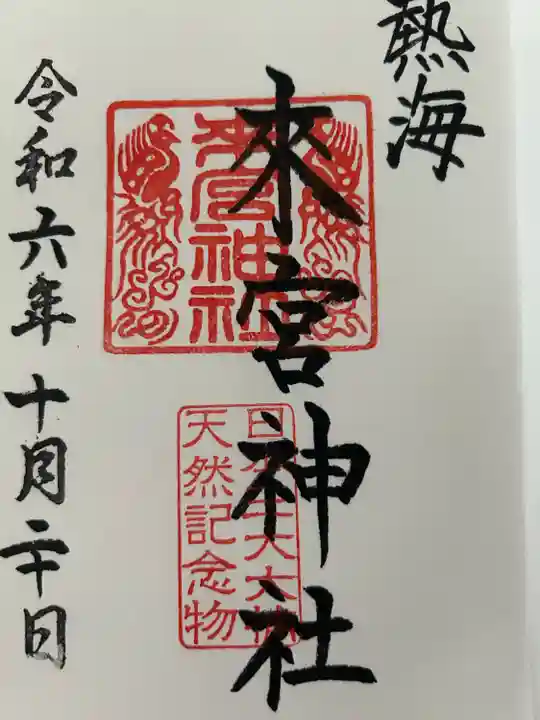 熱海
來宮神社
來宮神社
天然記念物
令和六年十月二十日